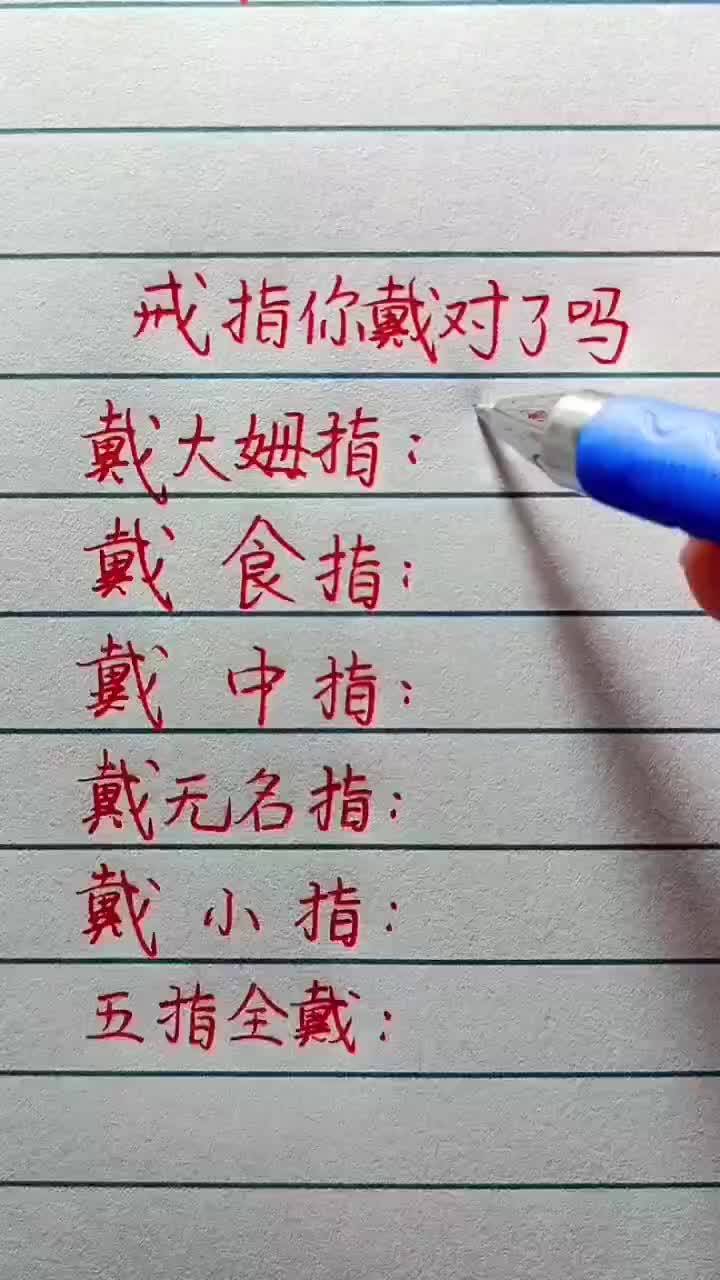 戒指你戴对了吗
戴大姆指：
戴 食指：
戴 中指：
戴无名指：
戴 小 指：
五指全戴：